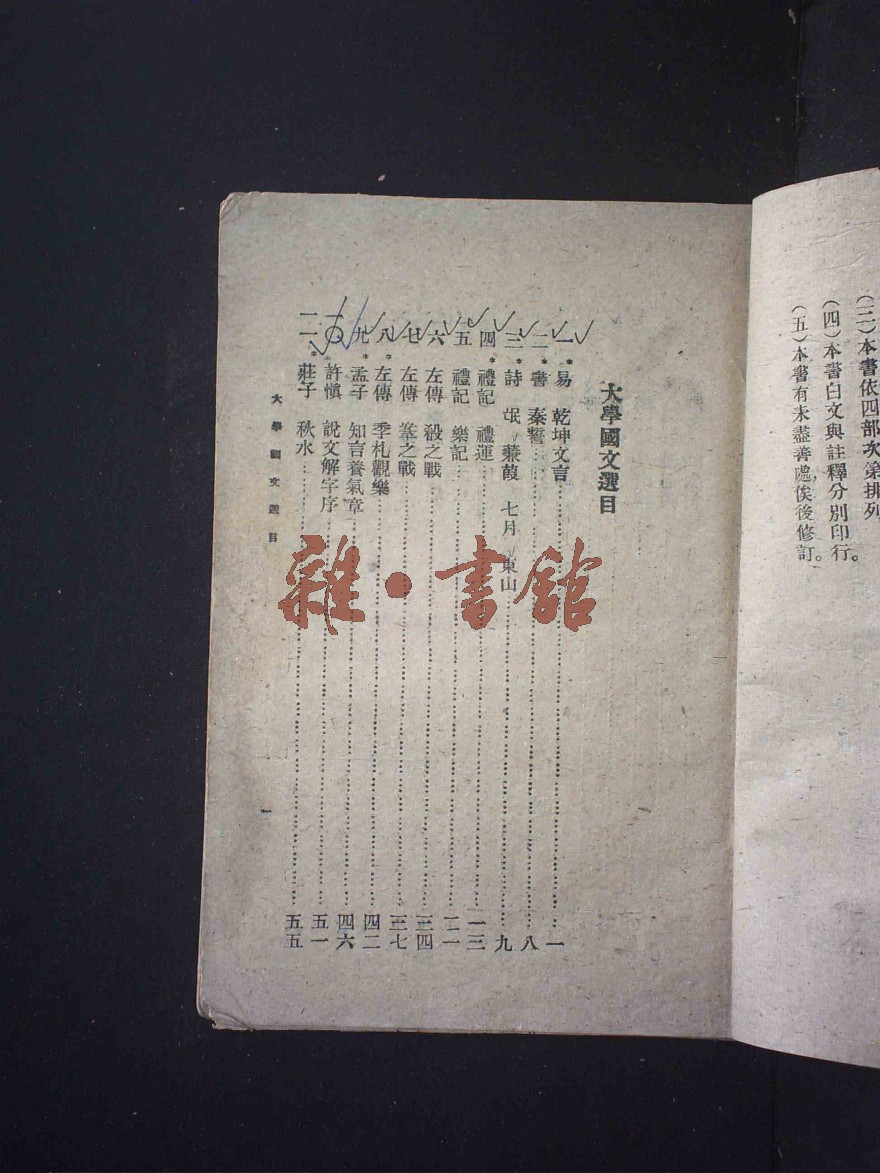 (三)本書依四部次第排列
(四)本書白文與註釋分別印行。
(五)本書有未盡善處,俟後修訂。
大學國文選目
一*易 乾坤文言……一
二*書 秦誓……八
三*詩 氓 蒹葭 七月 東山……九
四*禮記 禮運……一三
五 禮記 樂記……二一
六 左傳 殽之戰……三四
七 左傳 鞌之戰……三七
八*左傳 季札觀樂……四二
九*孟子 知言養氣章……四六
許慎 說文解字序……五一
一一*莊子 秋水……五五
大學國文選目
一
雜·書館